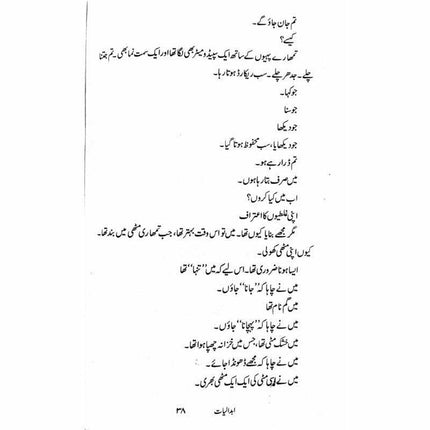 تم جان جاؤ گے۔
کیسے؟
تمھارے پہیوں کے ساتھ ایک سپیڈومیٹر بھی لگا تھا اور ایک سمت نما بھی۔ تم جتنا
چلے۔ جدھر چلے۔ سب ریکارڈ ہوتا رہا۔
جو کہا۔
جو سنا
جو دیکھا
جو دیکھایا، سب محفوظ ہوتا گیا۔
تم ڈرا رہے ہو۔
میں صرف بتا رہا ہوں۔
اب میں کیا کروں؟
اپنی غلطیوں کا اعتراف
مگر مجھے بنایا کیوں تھا۔ میں تو اس وقت بہتر تھا، جب تمھاری مٹھی میں بند تھا۔
کیوں اپنی مٹھی کھولی۔
ایسا ہونا ضروری تھا۔ اس لیے کہ میں ”تنہا“ تھا
میں نے چاہا کہ ”جانا“ جاؤں۔
میں گم نام تھا
میں نے چاہا کہ ”پہچانا“ جاؤں۔
میں خشک مٹی تھا، جس میں خزانہ چھپا ہوا تھا۔
میں نے چاہا کہ مجھے ڈھونڈا جائے۔
میں نے مٹی کی ایک ایک مٹھی بھری۔
ابدالیات ۳۸